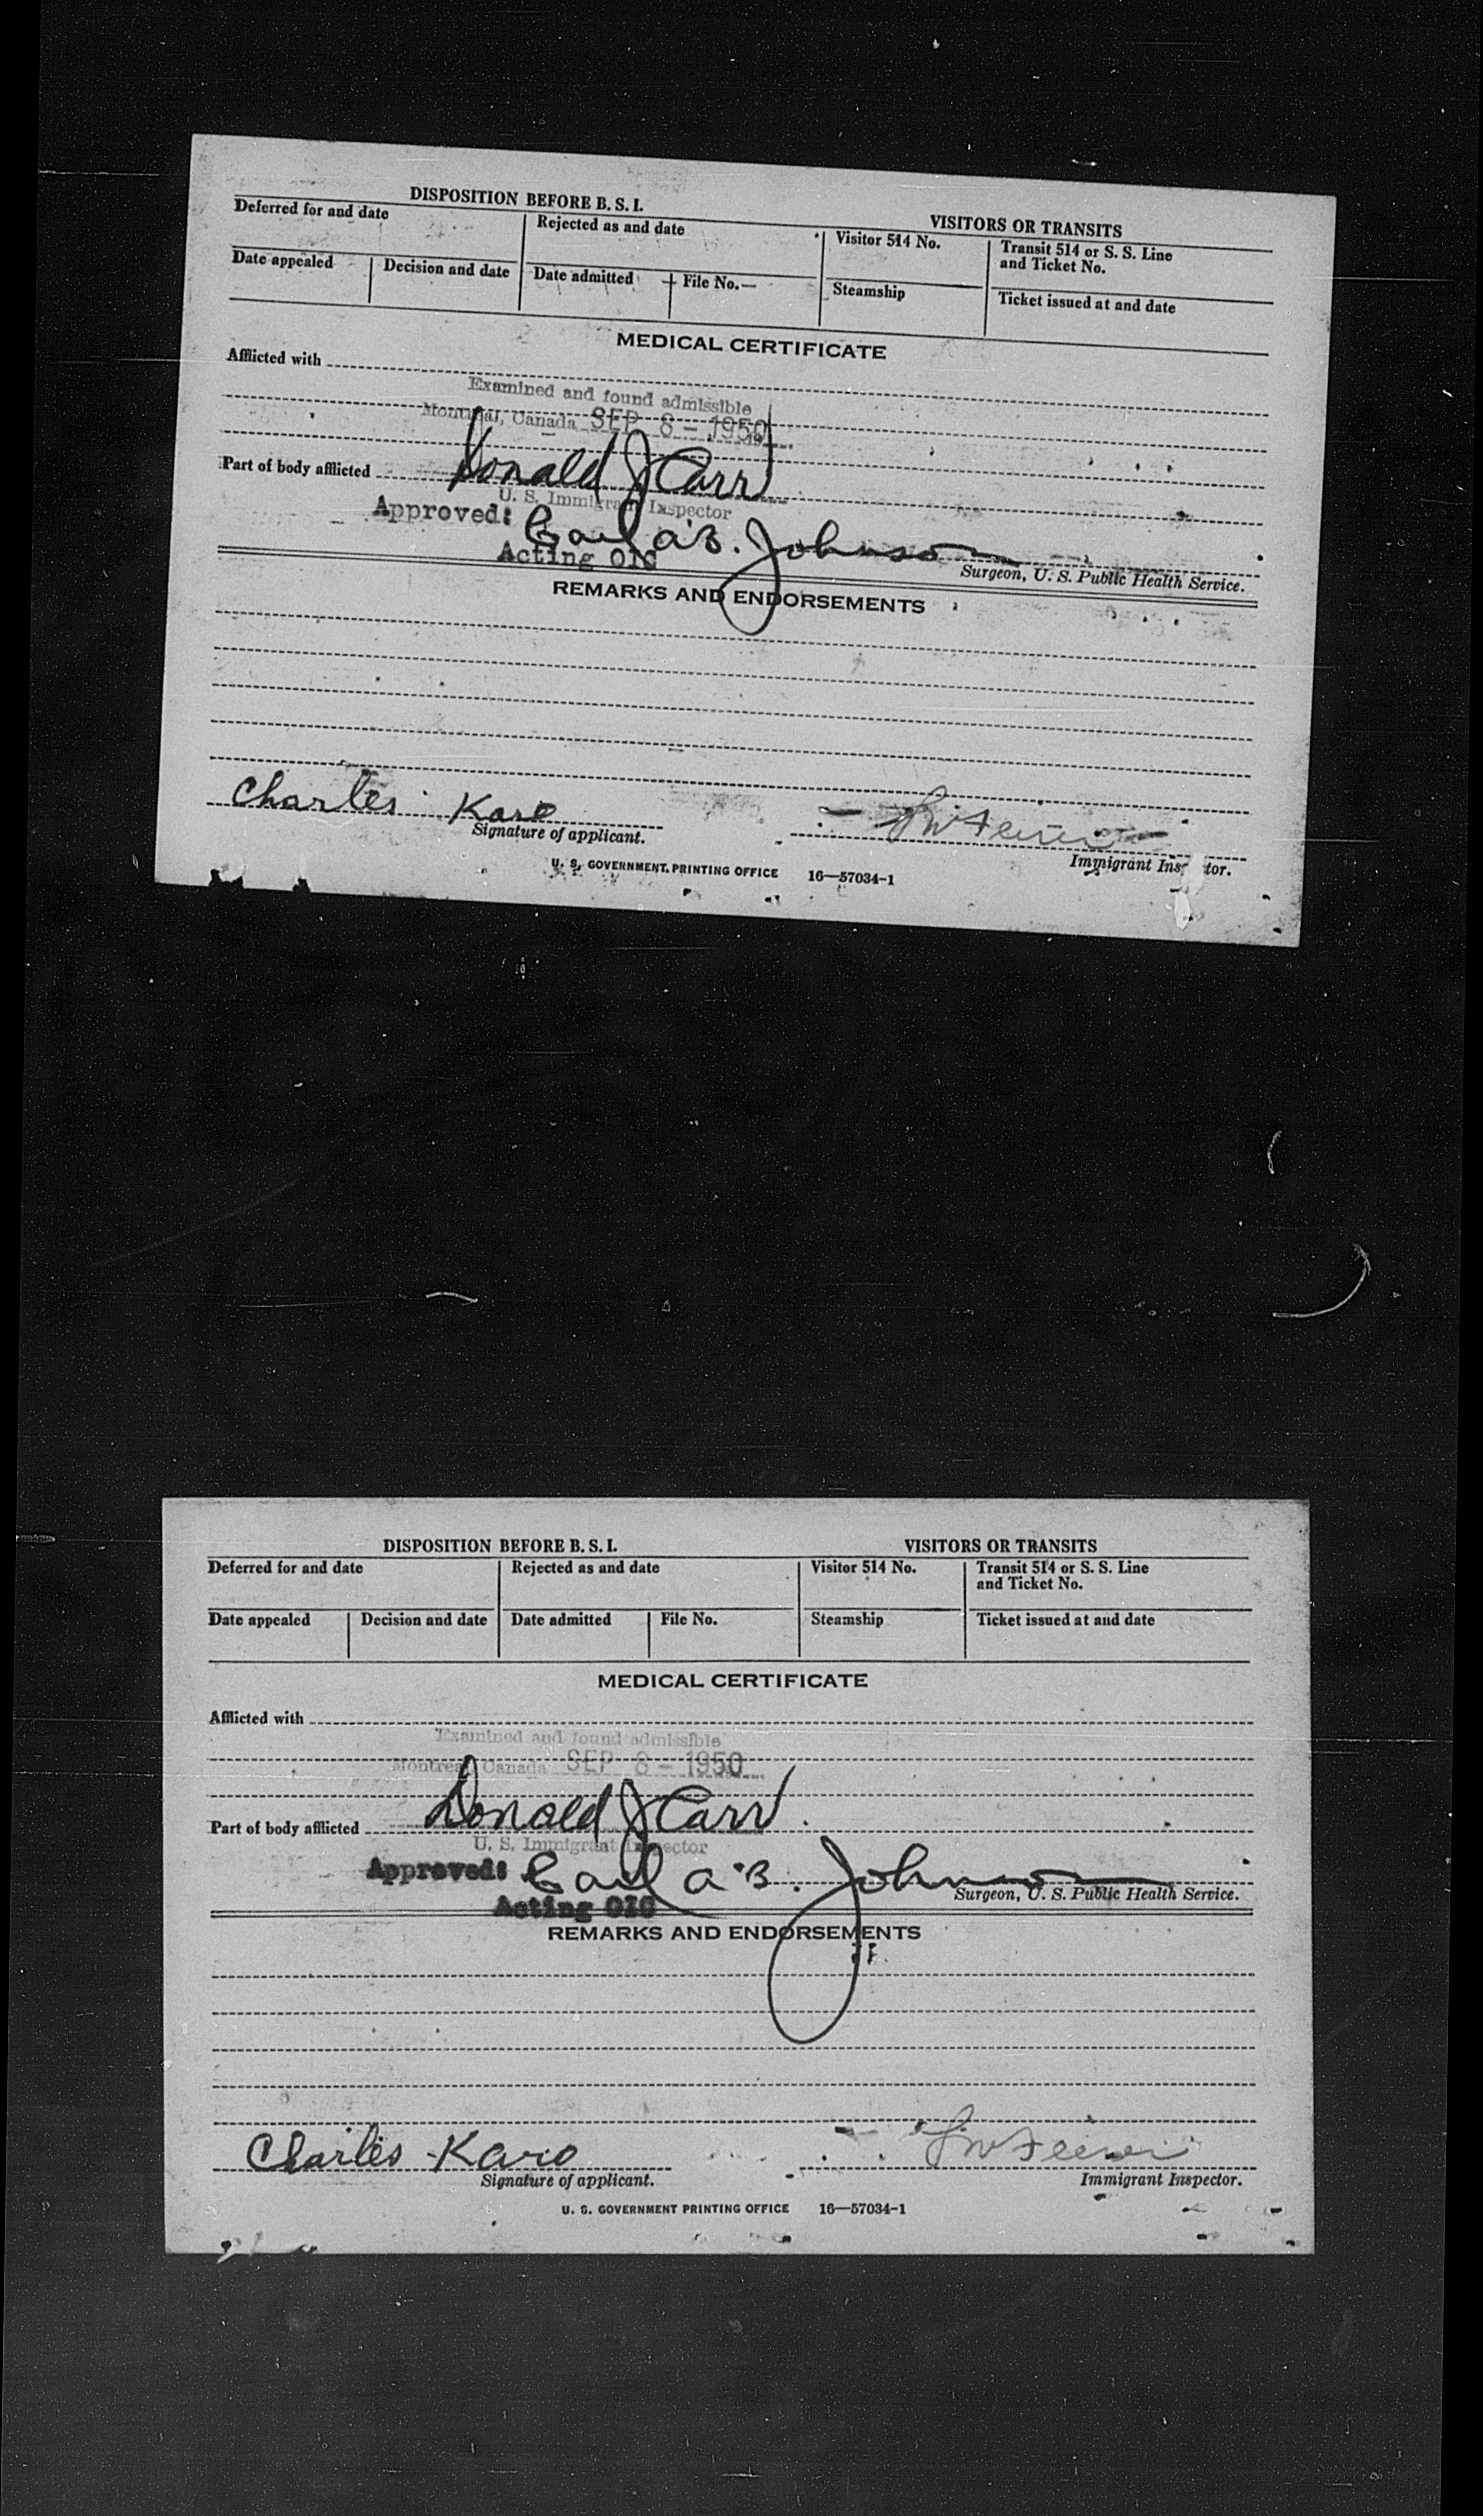 DISPOSITION BEFORE B. S. I.
VISITORS OR TRANSITS
Deferred for and date
Rejected as and date
Visitor 514 No.
Transit 514 or S. S. Line
and Ticket No.
Date appealed
Decision and date
Date admitted
File No.
Steamship
Ticket issued at and date
MEDICAL CERTIFICATE
Afflicted with
Examined and found admissible
Montreal, Canada SEP 8 - 1950
Part of body afflicted
Donald J Carr
U. S. Immigrant Inspector
Approved: Carl A. B. Johnson
Acting OIC
Surgeon, U. S. Public Health Service.
REMARKS AND ENDORSEMENTS
Charles Karo
Signature of applicant.
Immigrant Inspector.
U. S. GOVERNMENT PRINTING OFFICE 16—57034-1
DISPOSITION BEFORE B. S. I.
VISITORS OR TRANSITS
Deferred for and date
Rejected as and date
Visitor 514 No.
Transit 514 or S. S. Line
and Ticket No.
Date appealed
Decision and date
Date admitted
File No.
Steamship
Ticket issued at and date
MEDICAL CERTIFICATE
Afflicted with
Examined and found admissible
Montreal, Canada SEP 8 - 1950
Part of body afflicted
Donald J Carr
U. S. Immigrant Inspector
Approved: Carl A. B. Johnson
Acting OIC
Surgeon, U. S. Public Health Service.
REMARKS AND ENDORSEMENTS
Charles Karo
Signature of applicant.
Immigrant Inspector.
U. S. GOVERNMENT PRINTING OFFICE 16—57034-1